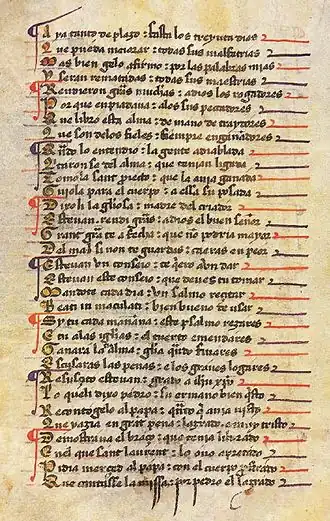 A ya tanto de plazo : fasta los treynta dias
Q ue pueda mejorar : todas sus malfetrias
M as bien gelo afirmo : por las palabras mias
Y seran rematadas : todas sus maestrias
R endieron grãs muchas : a dios los rogadores
P or que enpiadaua : a los sus peccadores
Q ue libro esta alma : de mano de traydores
Q ue son delos fieles : siempre engañadores
Q ñdo lo entendio : la gente adiablada
Q taron se del alma : que tenian ligada
T omola sant : que la auia ganada
G uiola para el cuerpo : a essa su posada
D ixoli la gliosa : madre del criador
E steuan : rendi grãs : a dios el buen señor
G rant grã te a fecha : que nõ podria mayor
D el mal si non te guardas : caeras en peor
E steuan vn conseio : te qero avn dar
E steuan este conseio : que deues tu tomar
M andote cada dia : vn salmo rezitar
B eati in maculati : bien bueno de vsar
S y tu cada mañana : este psalmo rezares
E tu alas iglias : el tuerto emendares
G anara la alma : glia qñdo finares
E scusaras las penas : e los graues logares
R esusçito esteuan : grado a ihũ xpo
F o quel dixo pedro : su ermano bien qisto
R econtogelo al papa : qñto q auia visto
Q ue yazia en grãt pena : lazrado e muy tristo
D emostraua el braço : que tenia liurado
E nel que sant laurent : lo ouo apretado
P idia merçed al papa : con el cuerpo postrado
Q ue cantasse la missa : por pedro el lazrado